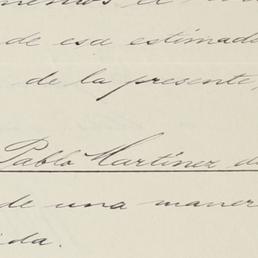 de esa estimade
de la presente,
Pablo Martínez de
de una maner
ida.